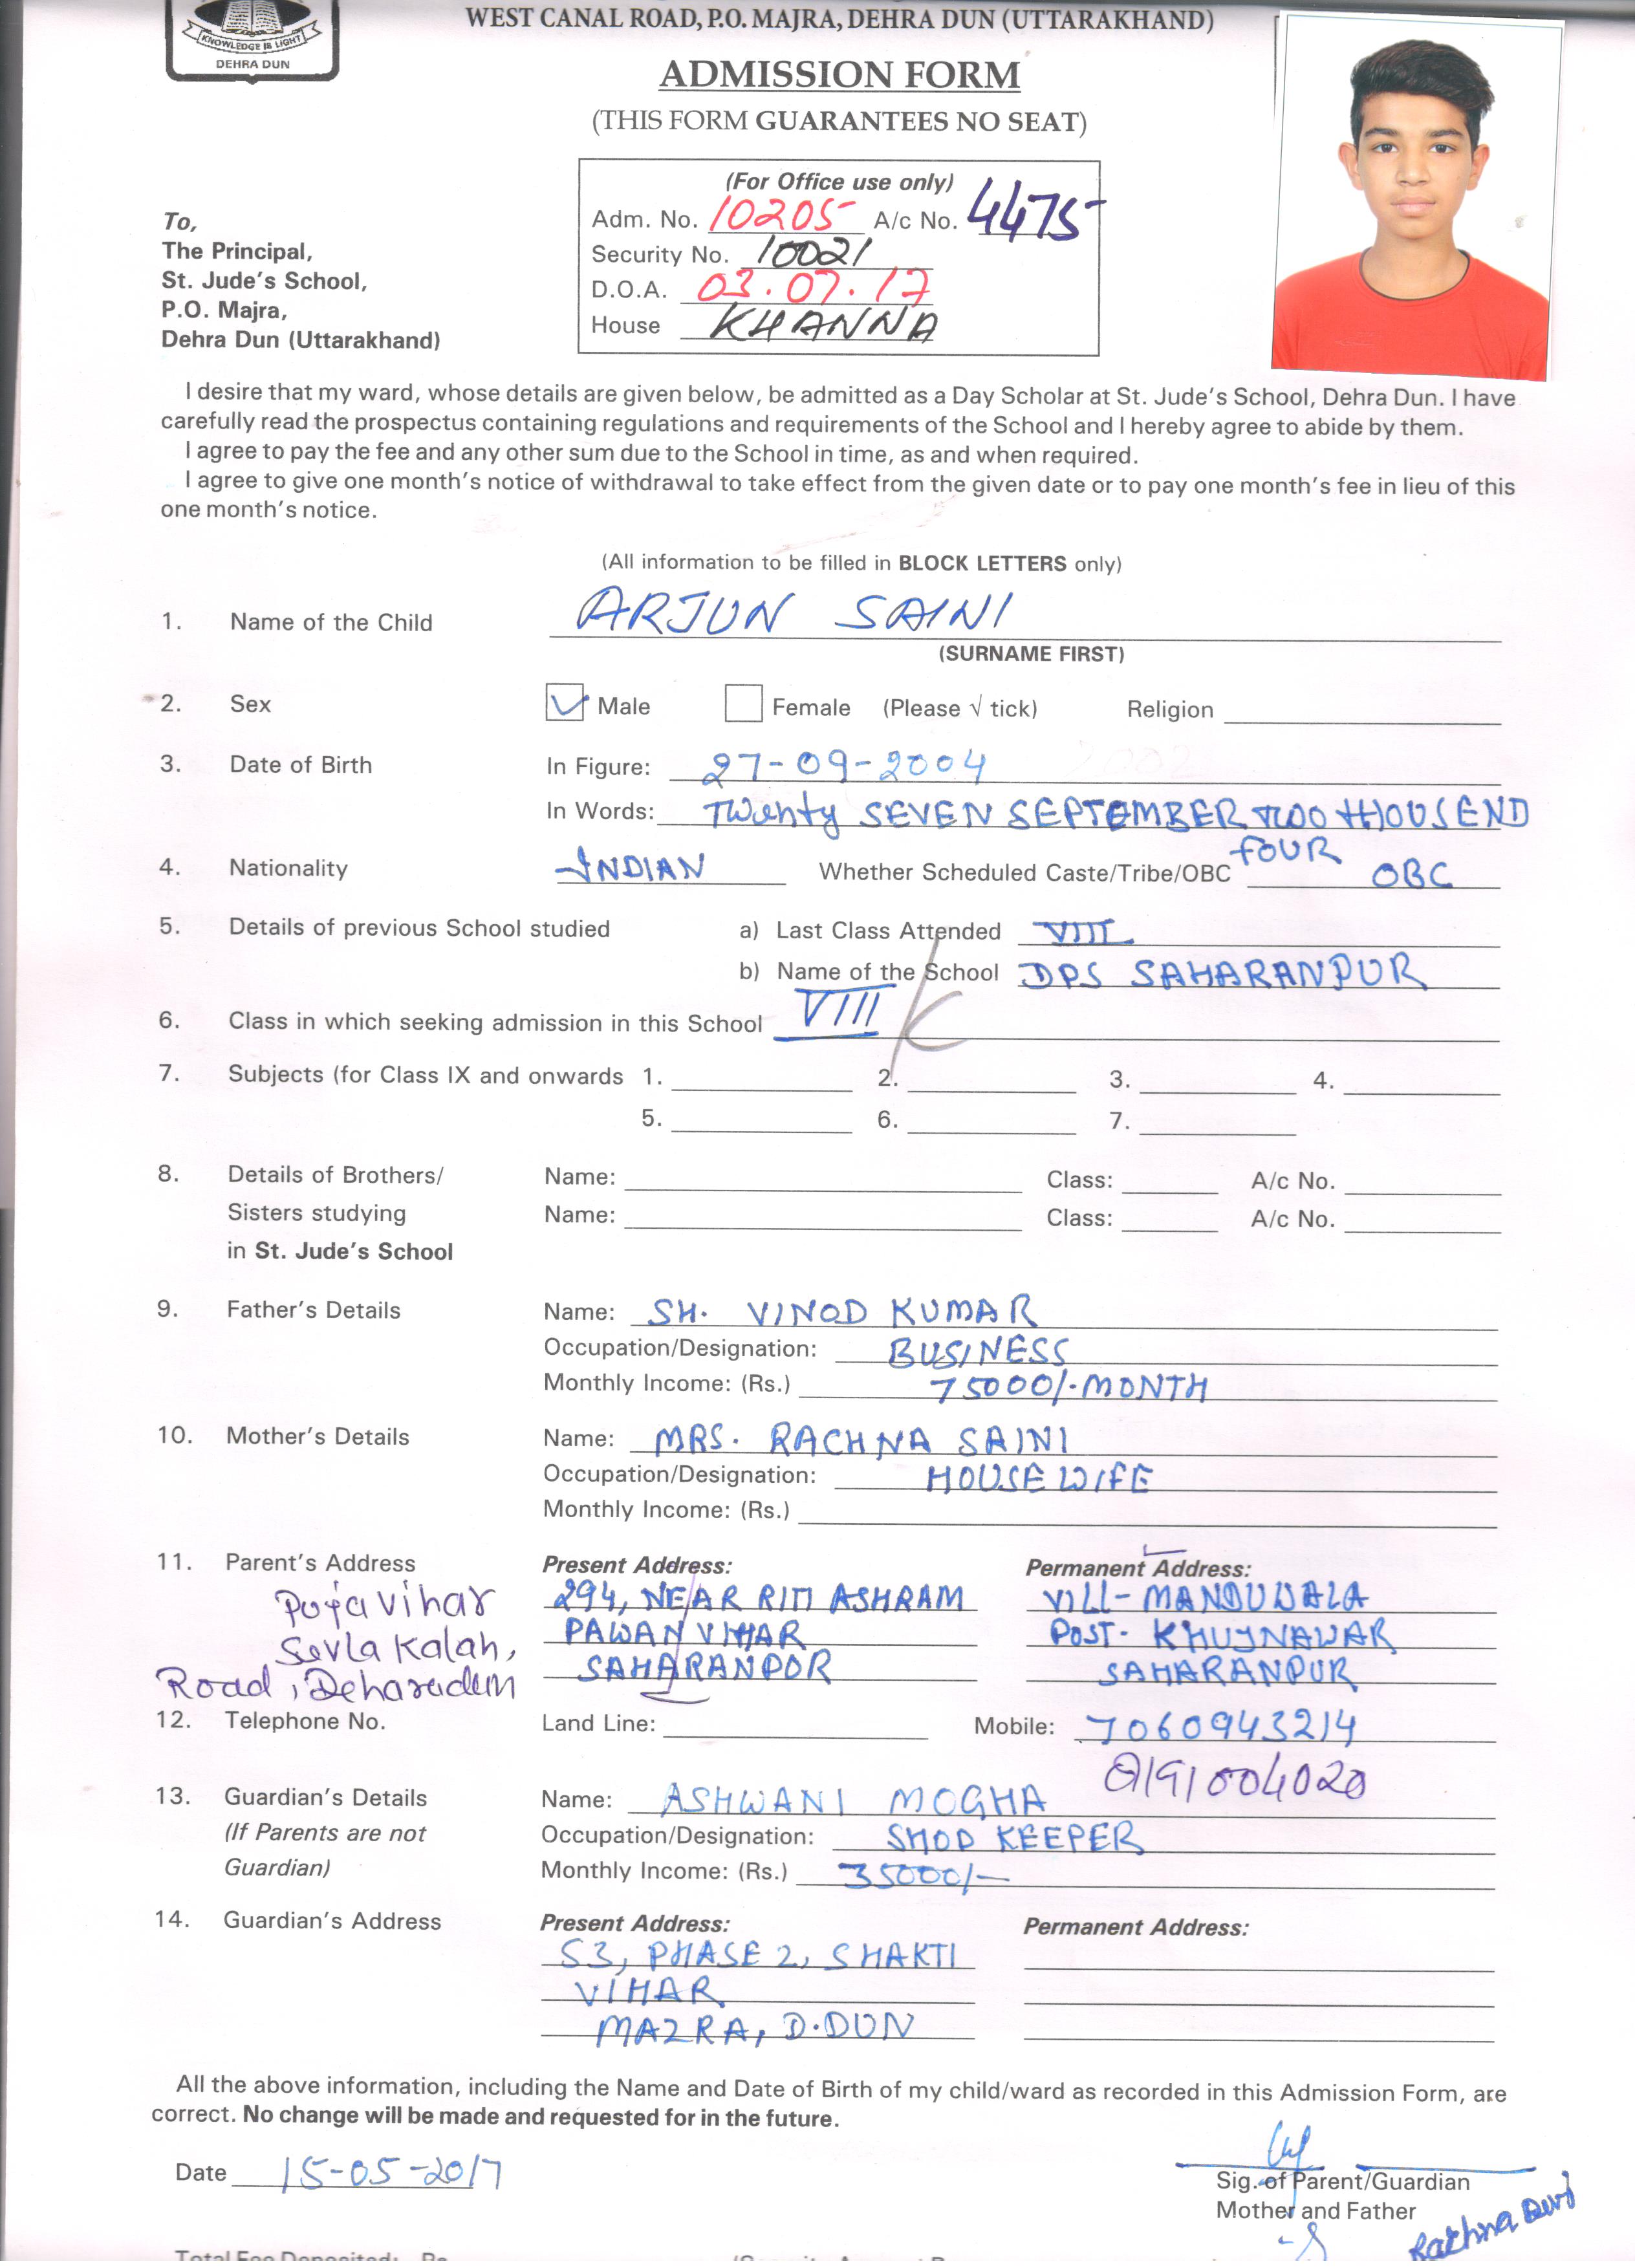 WEST CANAL ROAD, P.O. MAJRA, DEHRA DUN (UTTARAKHAND)
KNOWLEDGE IS LIGHT
DEHRA DUN
ADMISSION FORM
(THIS FORM GUARANTEES NO SEAT)
(For Office use only)
Adm. No. 10205 A/c No. 4475
Security No. 10021
D.O.A. 03.07.17
House KHANNA
To,
The Principal,
St. Jude's School,
P.O. Majra,
Dehra Dun (Uttarakhand)
I desire that my ward, whose details are given below, be admitted as a Day Scholar at St. Jude's School, Dehra Dun. I have
carefully read the prospectus containing regulations and requirements of the School and I hereby agree to abide by them.
I agree to pay the fee and any other sum due to the School in time, as and when required.
I agree to give one month's notice of withdrawal to take effect from the given date or to pay one month's fee in lieu of this
one month's notice.
(All information to be filled in BLOCK LETTERS only)
1. Name of the Child ARJUN SAINI
(SURNAME FIRST)
2. Sex Male Female (Please √ tick) Religion
3. Date of Birth In Figure: 27-09-2004
In Words: Twenty SEVEN SEPTEMBER TWO THOUSEND
FOUR
4. Nationality INDIAN Whether Scheduled Caste/Tribe/OBC OBC
5. Details of previous School studied a) Last Class Attended VIII
b) Name of the School DPS SAHARANPUR
6. Class in which seeking admission in this School VIII
7. Subjects (for Class IX and onwards 1. 2. 3. 4.
5. 6. 7.
8. Details of Brothers/ Name: Class: A/c No.
Sisters studying Name: Class: A/c No.
in St. Jude's School
9. Father's Details Name: SH. VINOD KUMAR
Occupation/Designation: BUSINESS
Monthly Income: (Rs.) 75000/-MONTH
10. Mother's Details Name: MRS. RACHNA SAINI
Occupation/Designation: HOUSE WIFE
Monthly Income: (Rs.)
11. Parent's Address Present Address: Permanent Address:
Puja Vihar 294, NEAR RITI ASHRAM VILL- MANDUWALA
Sevla Kalah, PAWAN VIHAR POST- KHUJNAWAR
Road, Deharadun SAHARANPOR SAHARANPUR
12. Telephone No. Land Line: Mobile: 7060943214
8191004020
13. Guardian's Details Name: ASHWANI MOGHA
(If Parents are not Occupation/Designation: SHOD KEEPER
Guardian) Monthly Income: (Rs.) 35000/-
14. Guardian's Address Present Address: Permanent Address:
53, PHASE 2, SHAKTI
VIHAR
MAZRA, D.DUN
All the above information, including the Name and Date of Birth of my child/ward as recorded in this Admission Form, are
correct. No change will be made and requested for in the future.
Date 15-05-2017
Sig. of Parent/Guardian
Mother and Father
Rachna Devi
Total Fee Deposited: Rs.